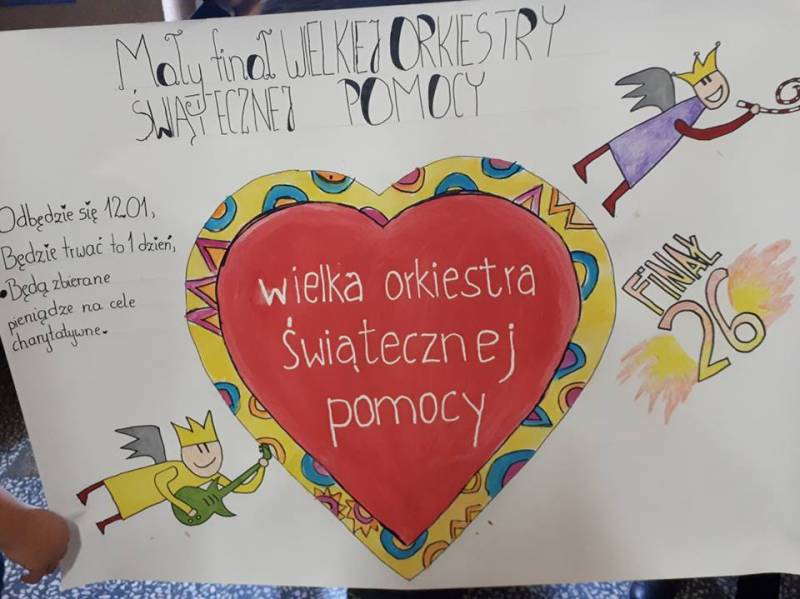 Mały finał WIELKIEJ ORKIESTRY
ŚWIĄTECZNEJ POMOCY
Odbędzie się 12.01,
Będzie trwać to 1 dzień,
• Będą zbierane
pieniądze na cele
charytatywne.
wielka orkiestra
świątecznej
pomocy
FINAŁ
26